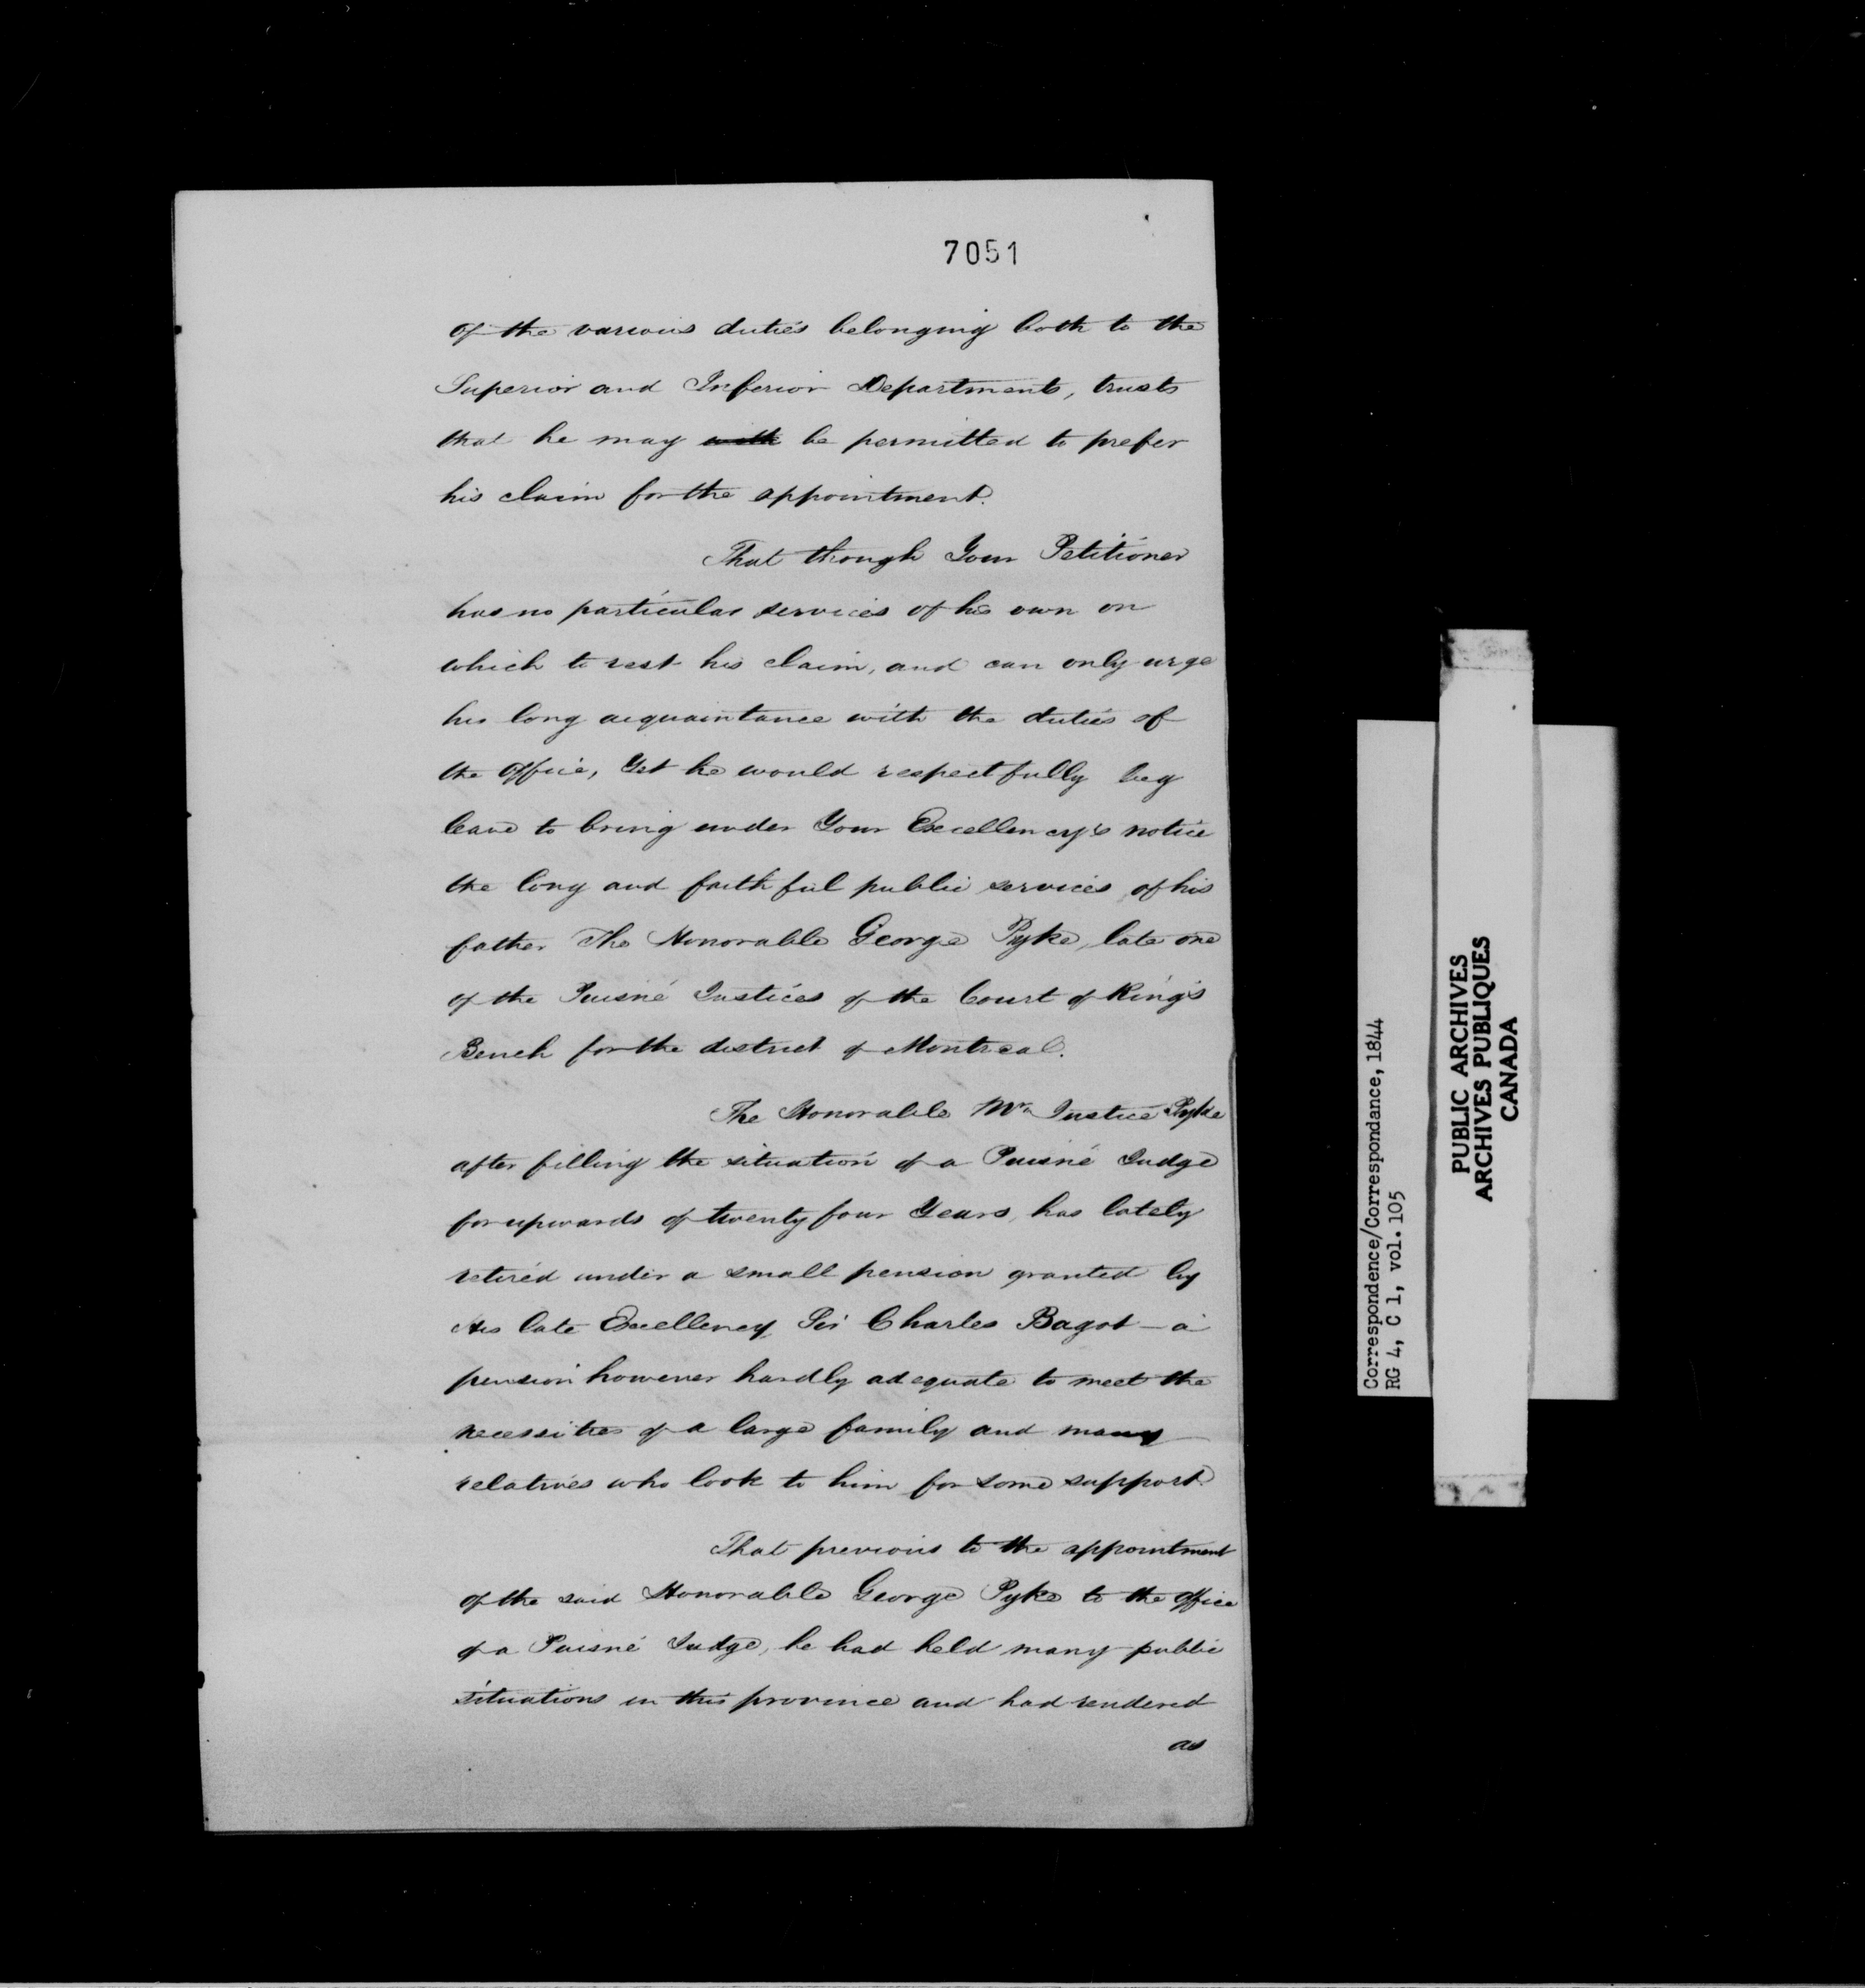 7051
of the various duties belonging both to the
Superior and Inferior Departments, trusts
that he may be permitted to prefer
his claim for the appointment.
That though Your Petitioner
has no particular services of his own on
which to rest his claim, and can only urge
his long acquaintance with the duties of
the Office, Yet he would respectfully beg
leave to bring under Your Excellency's notice
the long and faithful public services, of his
father The Honorable George Pyke, late one
of the Puisné Justices of the Court of King's
Bench for the district of Montreal.
The Honorable Mr. Justice Pyke
after filling the situation of a Puisné Judge
for upwards of twenty four Years, has lately
retired under a small pension granted by
His late Excellency Sir Charles Bagot — a
pension however hardly adequate to meet the
necessities of a large family and many
relatives who look to him for some support.
That previous to the appointment
of the said Honorable George Pyke to the office
of a Puisné Judge, he had held many public
situations in this province and had rendered
as
Correspondence/Correspondance, 1844
RG 4, C 1, vol. 105
PUBLIC ARCHIVES
ARCHIVES PUBLIQUES
CANADA